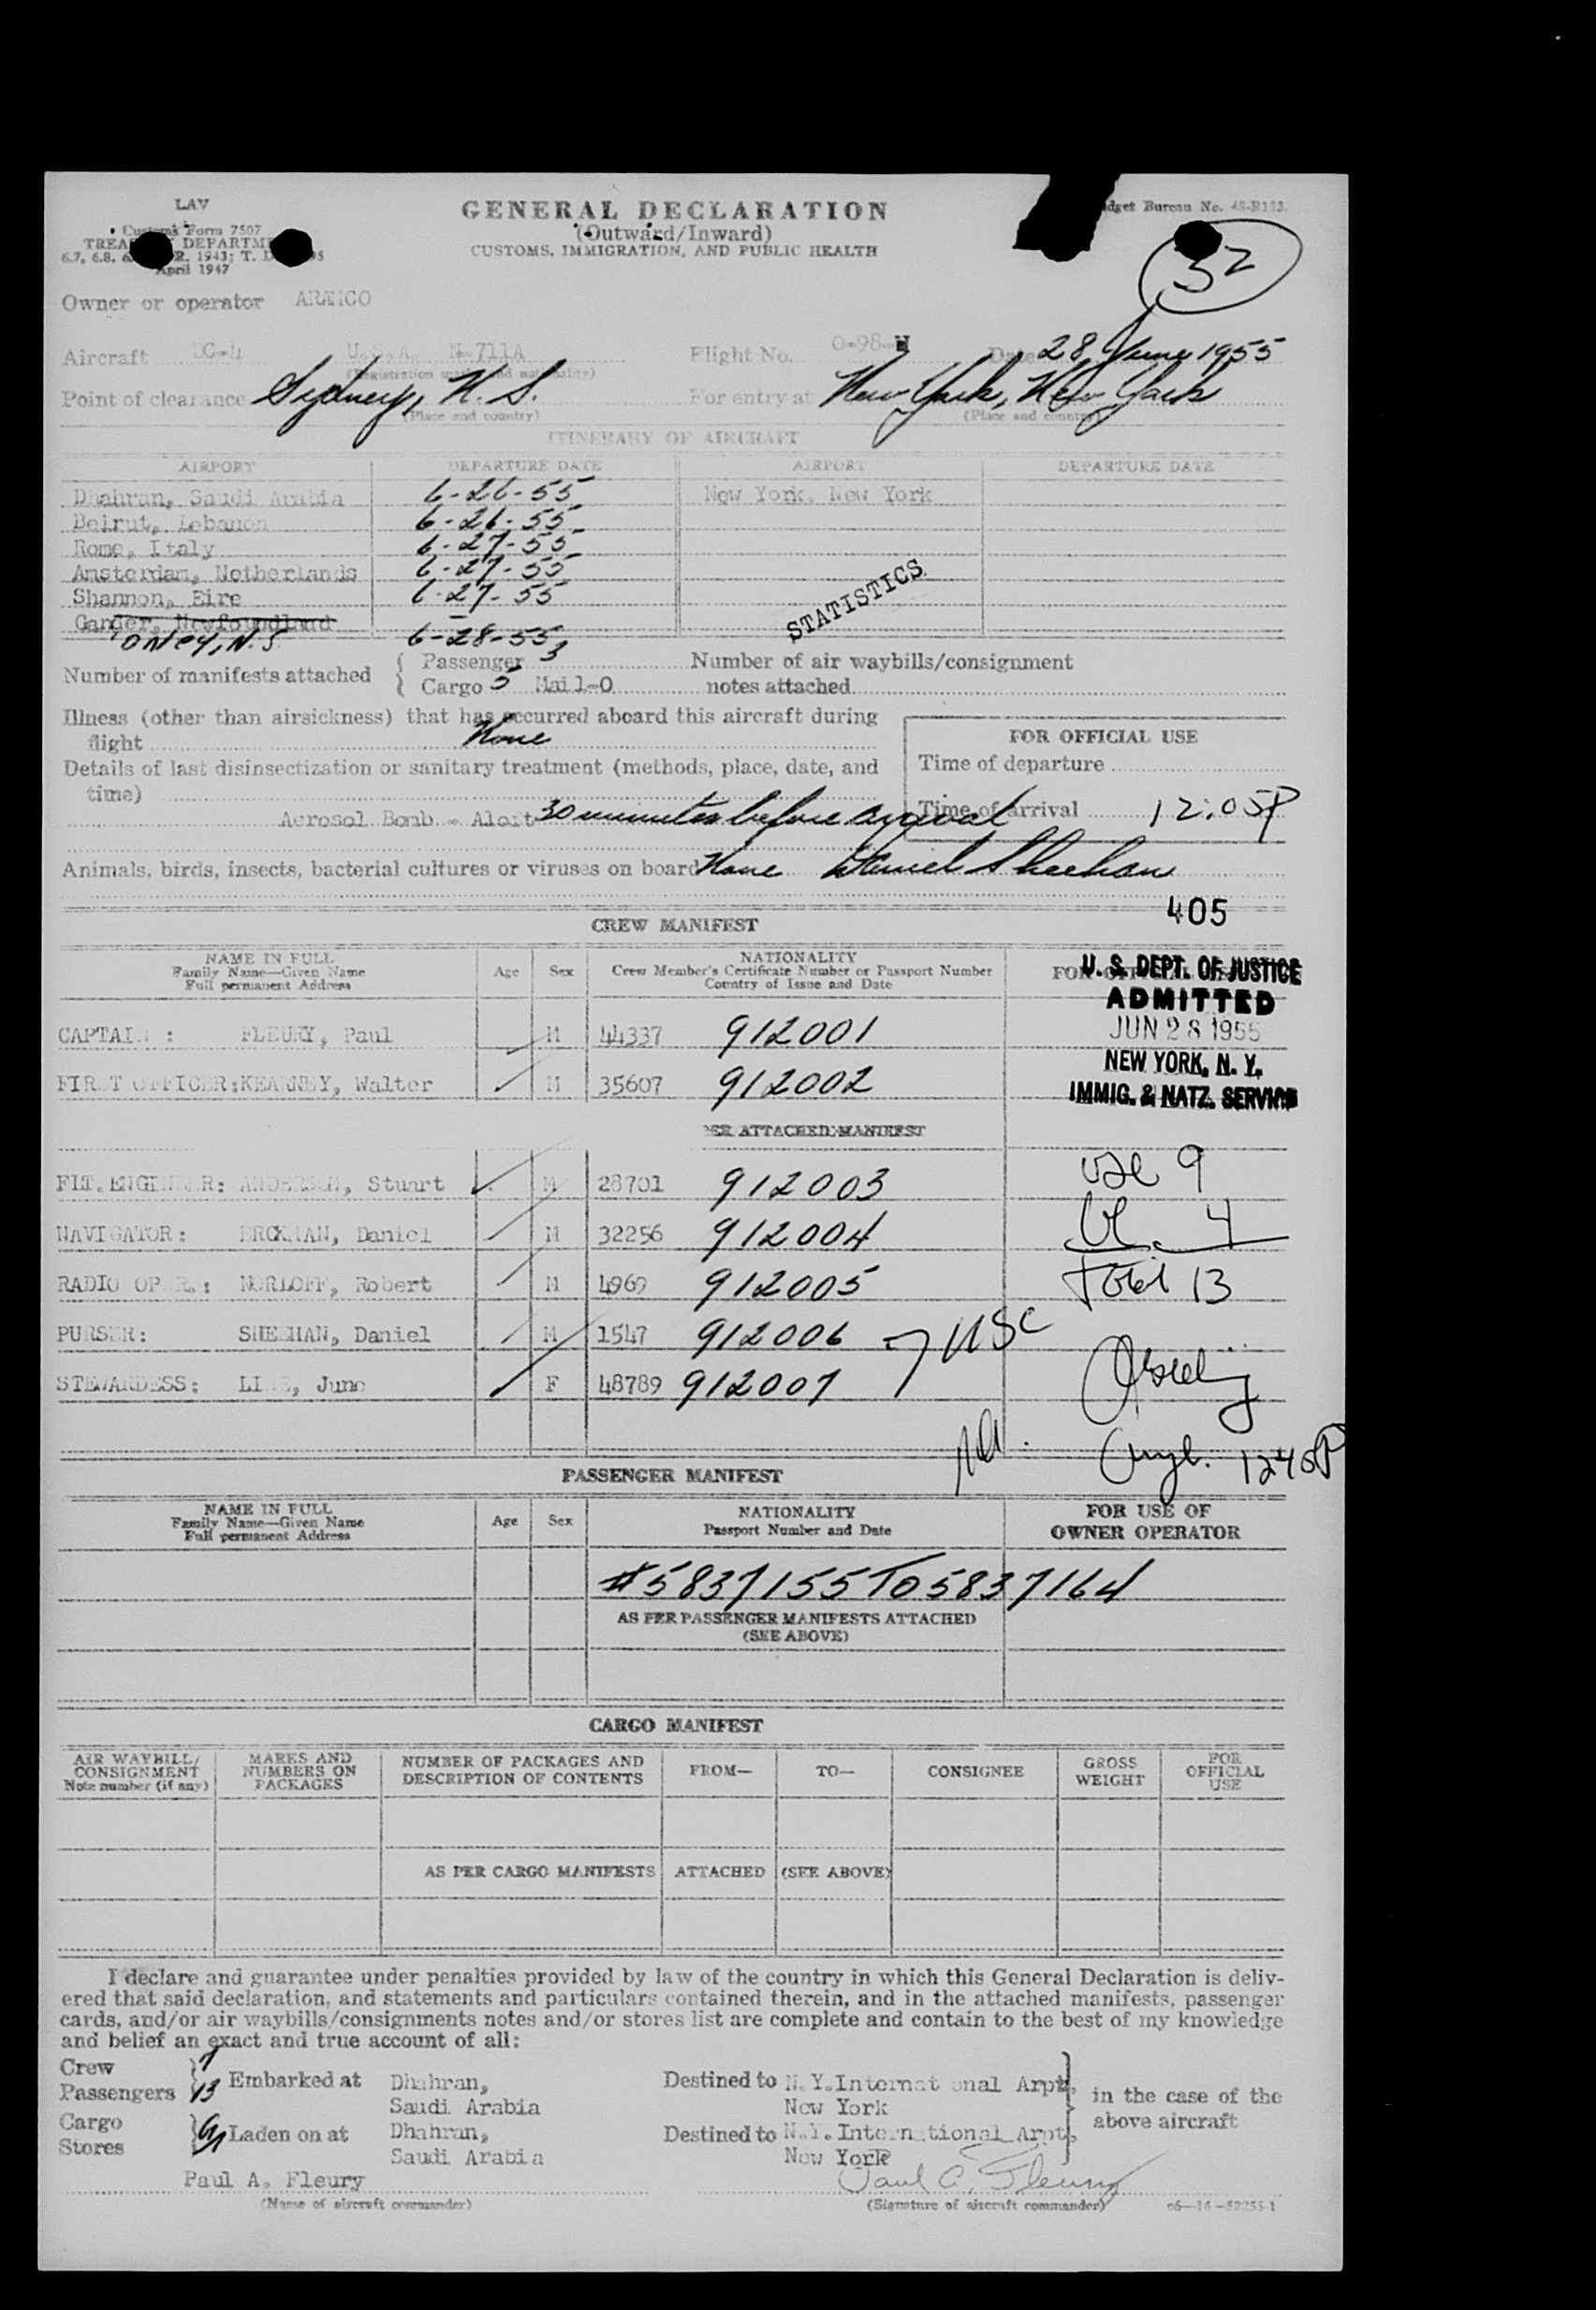 LAV
Customs Form 7507
TREA DEPARTME
6.7, 6.8, R. 1943; T. D. 95
April 1947
GENERAL DECLARATION
(Outward/Inward)
CUSTOMS, IMMIGRATION, AND PUBLIC HEALTH
dget Bureau No. 48-R183.
32
Owner or operator ARAMCO
Aircraft DC-4 U.S.A. N-711A Flight No. 0-98-H Date 28 June 1955
(Registration marks and nationality)
Point of clearance Sydney, N. S. For entry at New York, New York
(Place and country) (Place and country)
ITINERARY OF AIRCRAFT
AIRPORT DEPARTURE DATE AIRPORT DEPARTURE DATE
Dhahran, Saudi Arabia 6-26-55 New York, New York
Beirut, Lebanon 6-26-55
Rome, Italy 6-27-55
Amsterdam, Netherlands 6-27-55
Shannon, Eire 6-27-55
STATISTICS
Gander, Newfoundland
N.S. 6-28-55
Number of manifests attached { Passenger 3 Number of air waybills/consignment
Cargo 5 Mail-0 notes attached
Illness (other than airsickness) that has occurred aboard this aircraft during
flight None
FOR OFFICIAL USE
Details of last disinsectization or sanitary treatment (methods, place, date, and
time)
Time of departure
Aerosol Bomb - Aloft 30 minutes before arrival
Time of arrival 12:05P
Animals, birds, insects, bacterial cultures or viruses on board None Daniel Sheehan
405
CREW MANIFEST
NAME IN FULL
Family Name—Given Name
Full permanent Address
Age Sex
NATIONALITY
Crew Member's Certificate Number or Passport Number
Country of Issue and Date
U. S. DEPT. OF JUSTICE
ADMITTED
JUN 28 1955
NEW YORK, N. Y.
IMMIG. & NATZ. SERVICE
CAPTAIN : FLEURY, Paul M 44337 912001
FIRST OFFICER: KEARNEY, Walter M 35607 912002
PER ATTACHED MANIFEST
FLT. ENGINEER: ANDERSEN, Stuart M 28701 912003
USC 9
NAVIGATOR: Daniel M 32256 912004
4
RADIO OP R.: NORLOFF, Robert M 4969 912005
Total 13
PURSER: SHEEHAN, Daniel M 1547 912006 USC
STEWARDESS: June F 48789 912007
1240P
PASSENGER MANIFEST
NAME IN FULL
Family Name—Given Name
Full permanent Address
Age Sex
NATIONALITY
Passport Number and Date
FOR USE OF
OWNER OPERATOR
#5837155 TO 5837164
AS PER PASSENGER MANIFESTS ATTACHED
(SEE ABOVE)
CARGO MANIFEST
AIR WAYBILL/
CONSIGNMENT
Note number (if any)
MARKS AND
NUMBERS ON
PACKAGES
NUMBER OF PACKAGES AND
DESCRIPTION OF CONTENTS
FROM—
TO—
CONSIGNEE
GROSS
WEIGHT
FOR
OFFICIAL
USE
AS PER CARGO MANIFESTS ATTACHED (SEE ABOVE)
I declare and guarantee under penalties provided by law of the country in which this General Declaration is deliv-
ered that said declaration, and statements and particulars contained therein, and in the attached manifests, passenger
cards, and/or air waybills/consignments notes and/or stores list are complete and contain to the best of my knowledge
and belief an exact and true account of all:
Crew 7
Passengers 13 Embarked at Dhahran, Destined to N.Y. International Arpt,
Saudi Arabia New York
in the case of the
above aircraft
Cargo
Stores Laden on at Dhahran, Destined to N.Y. International Arpt,
Saudi Arabia New York
Paul A. Fleury Paul A. Fleury
(Name of aircraft commander) (Signature of aircraft commander) c6—16—52255-1